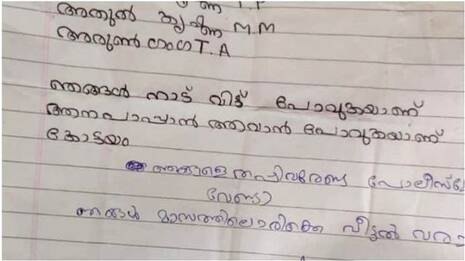 അതുൽ കൃഷ്ണ M.M
അരുൺ ഗംഗ T.A
ഞങ്ങൾ നാട് വിട്ട് പോവുകയാണ്
ആനപാപ്പാൻ ആവാൻ പോവുകയാണ്
കോട്ടയം
ഞങ്ങളെ തപ്പിവരേണ്ട പോലീസ്
വേണ്ടാ
ഞങ്ങൾ മാസത്തിലൊരിക്കെ വീട്ടിൽ വരാ